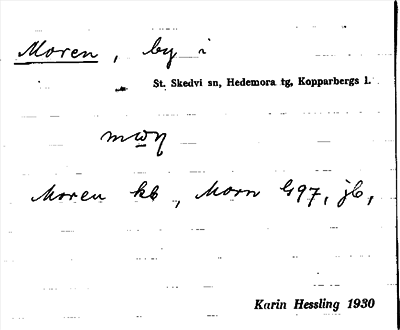 Moren, by i
St. Skedvi sn, Hedemora tg, Kopparbergs l.
Moren kb, Morn G97, jb,
Karin Hessling 1930